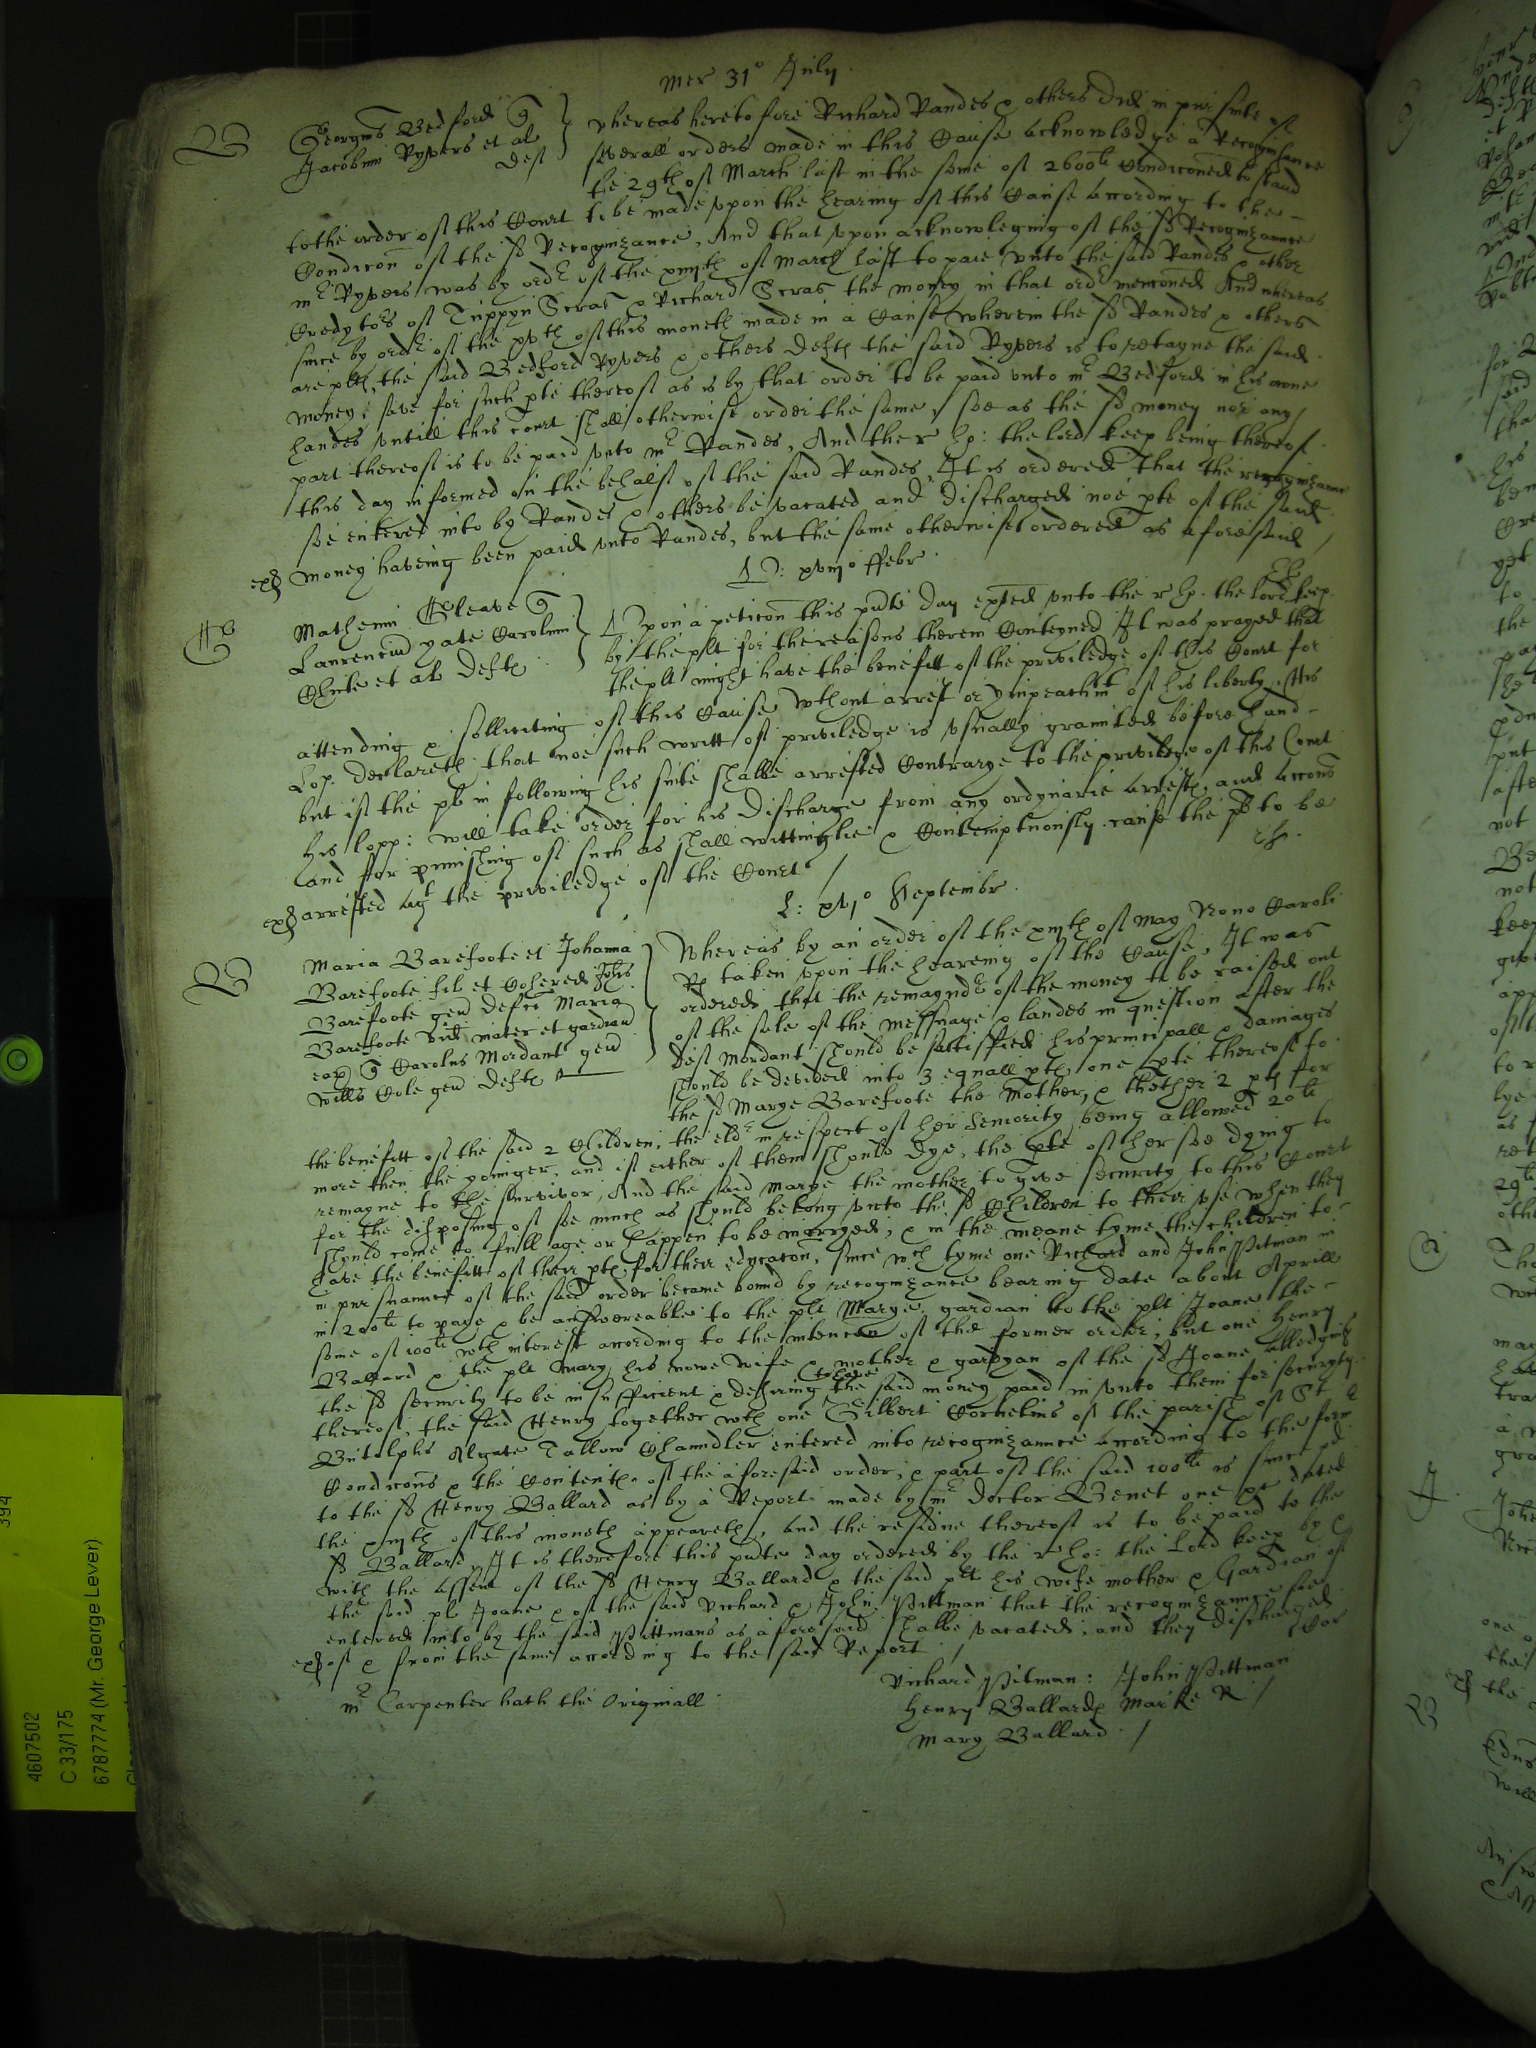 Mer 31° July
B
Georgius Bedford q
Jacobum Ryvers et al
def
Whereas heretofore Richard Randes & others did in pursuite of
severall orders made in this Cause acknowledge a Recognisance
the 29th of March last in the some of 2600li Condiconed to stand
to the order of this Court to be made upon the hearing of this Cause according to the
Condicon of the sd Recognizance, And that upon acknowleging of the sd Recognizannce
mr Ryvers was by ordr of the of March last to paie unto the said Randes & other
Credytors of Tuppyn Scras & Richard Scras the money in that ordr menconed And whereas
since by ordr of the xvth of this moneth made in a Cause wherein the sd Randes & others
are plts, the said Bedford Ryvers & others defts the said Ryvers is to retayne the said
money, save for such pte thereof as is by that order to be paid unto mr Bedford in his owne
handes untill this Court shall otherwise order the same, soe as the sd money nor any
part thereof is to be paid unto mr Randes, And the r ho: the lord keep being thereof
this day informed on the behalf of the said Randes It is ordered That the recognizance
soe entered into by Randes & others be vacated and discharged noe pte of the said
exr money haveing been paid unto Randes, but the same otherwise ordered as aforesaid /
D: xviijo ffebr
Matheum Cleave q
Laurencium yate Carolum
White et al defts
Upon a peticon this pnte day exhted unto the r ho. the lord keep.
by the plt for the reasons therein Conteyned It was prayed that
the plt might have the benefitt of the priviledge of this Court for
attending & solliciting of this Cause wthout arrest or ympeachmt of his liberty. His
Lop. declareth that noe such writt of priviledge is usually graunted before hand
but if the plt in following his suite shalbe arrested Contrarye to the priviledge of this Court
his lopp: will take order for his discharge from any ordynarie arrests, and accons
and for punishing of such as shall wittinglie & Contemptuously cause the plt to be
exr arrested agt the priviledge of the Court /
L: xvjo Septembr
B
Maria Barefoote et Johanna
Barefoote fil et Cohered Johis
Barefoote gen defti Maria
Barefoote vid mater et gardian
eax q Carolus Mordant gen
Willus Cole gen Defts
Whereas by an order of the of May Nono Caroli
Rs taken upon the heareing of the Cause, It was
ordered that the remayndr of the money to be raised out
of the sale of the messuage & landes in question after the
deft Mordant should be sattisfied his principall & damages
should be devided into 3 equall pts one pte thereof to
the sd Marye Barefoote the mother, & thother 2 pts for
the benefitt of the said 2 Children, the eldr in respect of her Seniority being allowed 20li
more then the younger, and if either of them should dye, the pte of her soe dying to
remayne to the survivor, And the said Marye the mother to give security to this Court
for the disposing of soe much as should belong unto the sd Children to their use when they
should come to full age or happen to be marryed, & in the meane tyme the children to
have the benefitt of their pts for their educacon, since wch tyme one Richard and John Pitman in
in pursuannce of the said order became bound by recognizance bearing date about Aprill
in 200li to paye & be answereable to the plt Marye, gardian to the plt Joane the
some of 100li wth interest according to the intencon of the former order, but one Henry
Ballard & the plt Mary his nowe wife & mother & gardyan of the sd Joane alledging
the sd security to be insufficient & desiring to have the said money paid in unto them for security
thereof, the said Henry together wth one Gilbert Cornelius of the parish of St
Butolphs Algate Tallow Channdler entered into recognizannce according to the form
Condicons & the Contents of the aforesaid order, & part of the said 100li is since pd
to the sd Henry Ballard as by a Report made by mr Doctor Benet one &c dated
the of this moneth appeareth, and the residue thereof is to be paid to the
sd Ballard, It is therefore this pnte day ordered by the r ho: the Lord keep by &
with the assent of the sd Henry Ballard & the said plt his wife mother & Gardian of
the said plt Joane & of the said Richard & John Pittman that the recognizannce soe
entered into by the said Pittmans as aforesaid shalbe vacated, and they discharged
exr of & from the same according to the said Report /
mr Carpenter hath the Originall
Richard Pitman: John Pittman
Henry Ballards Marke R /
Mary Ballard. /
4607502
C 33/175
6787774 (Mr. George Lever)
394